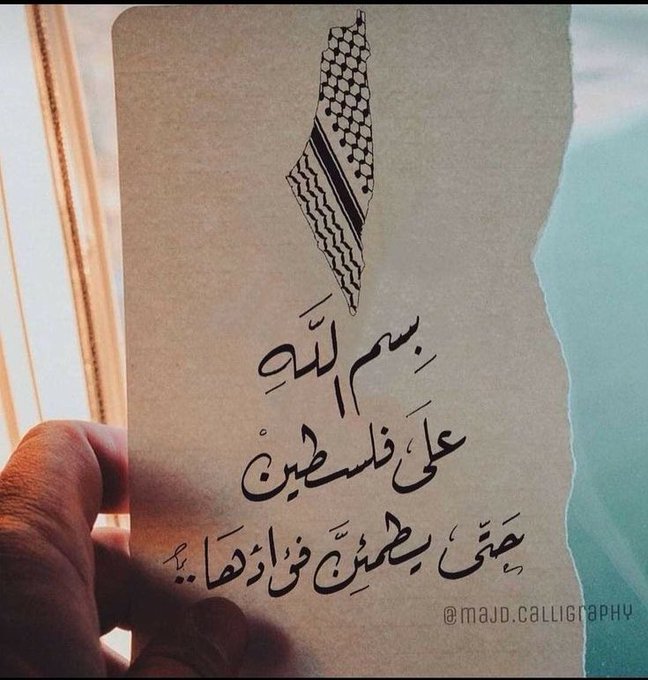 بِسم اللَّهِ
علَى فلسطينْ
حَتّى يطمئِنَّ فؤادُهَا..
@majd.calligraphy